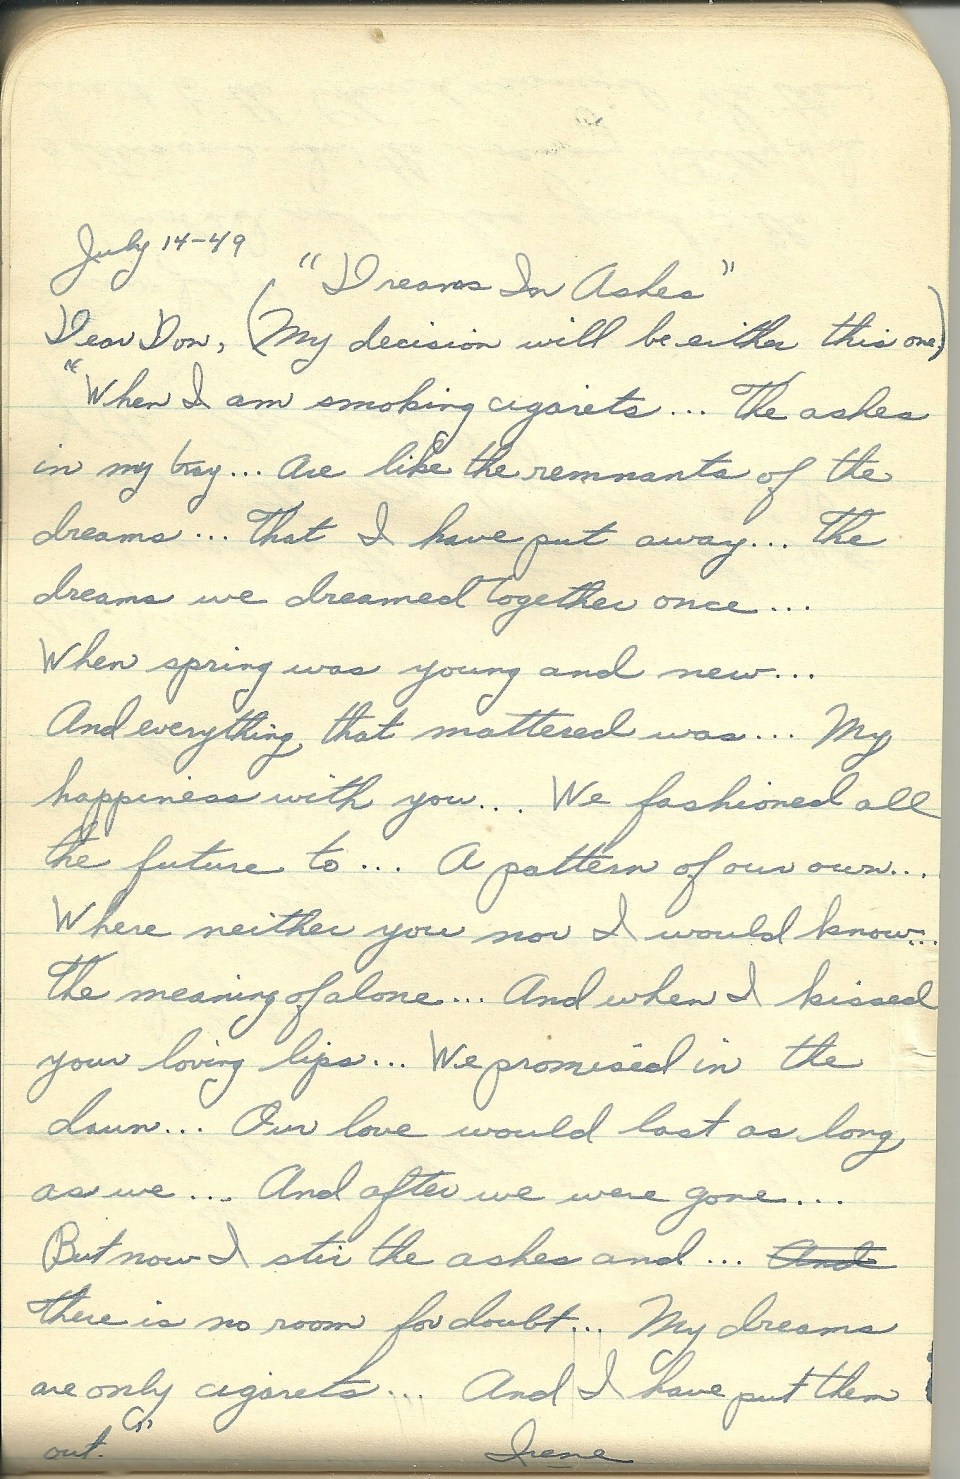 July 14-49
"Dreams In Ashes"
Dear Don, (My decision will be either this one)
"When I am smoking cigarets... The ashes
in my tray... Are like the remnants of the
dreams... That I have put away... The
dreams we dreamed together once...
When spring was young and new...
And everything that mattered was... My
happiness with you... We fashioned all
the future to... A pattern of our own...
Where neither you nor I would know...
The meaning of alone... And when I kissed
your loving lips... We promised in the
dawn... Our love would last as long
as we... And after we were gone...
But now I stir the ashes and... And
there is no room for doubt... My dreams
are only cigarets... And I have put them
out." Irene